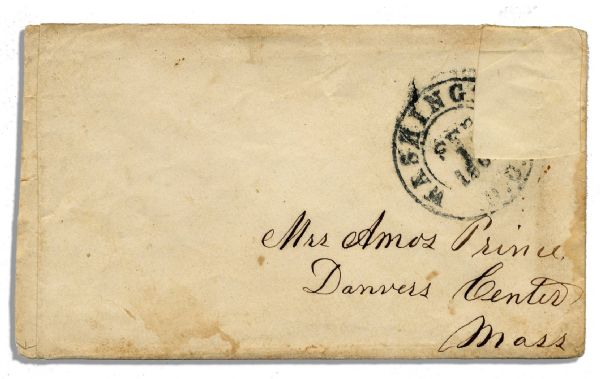 WASHINGT
D.C.
SEP
1
186
Mrs Amos Prince
Danvers Center
Mass